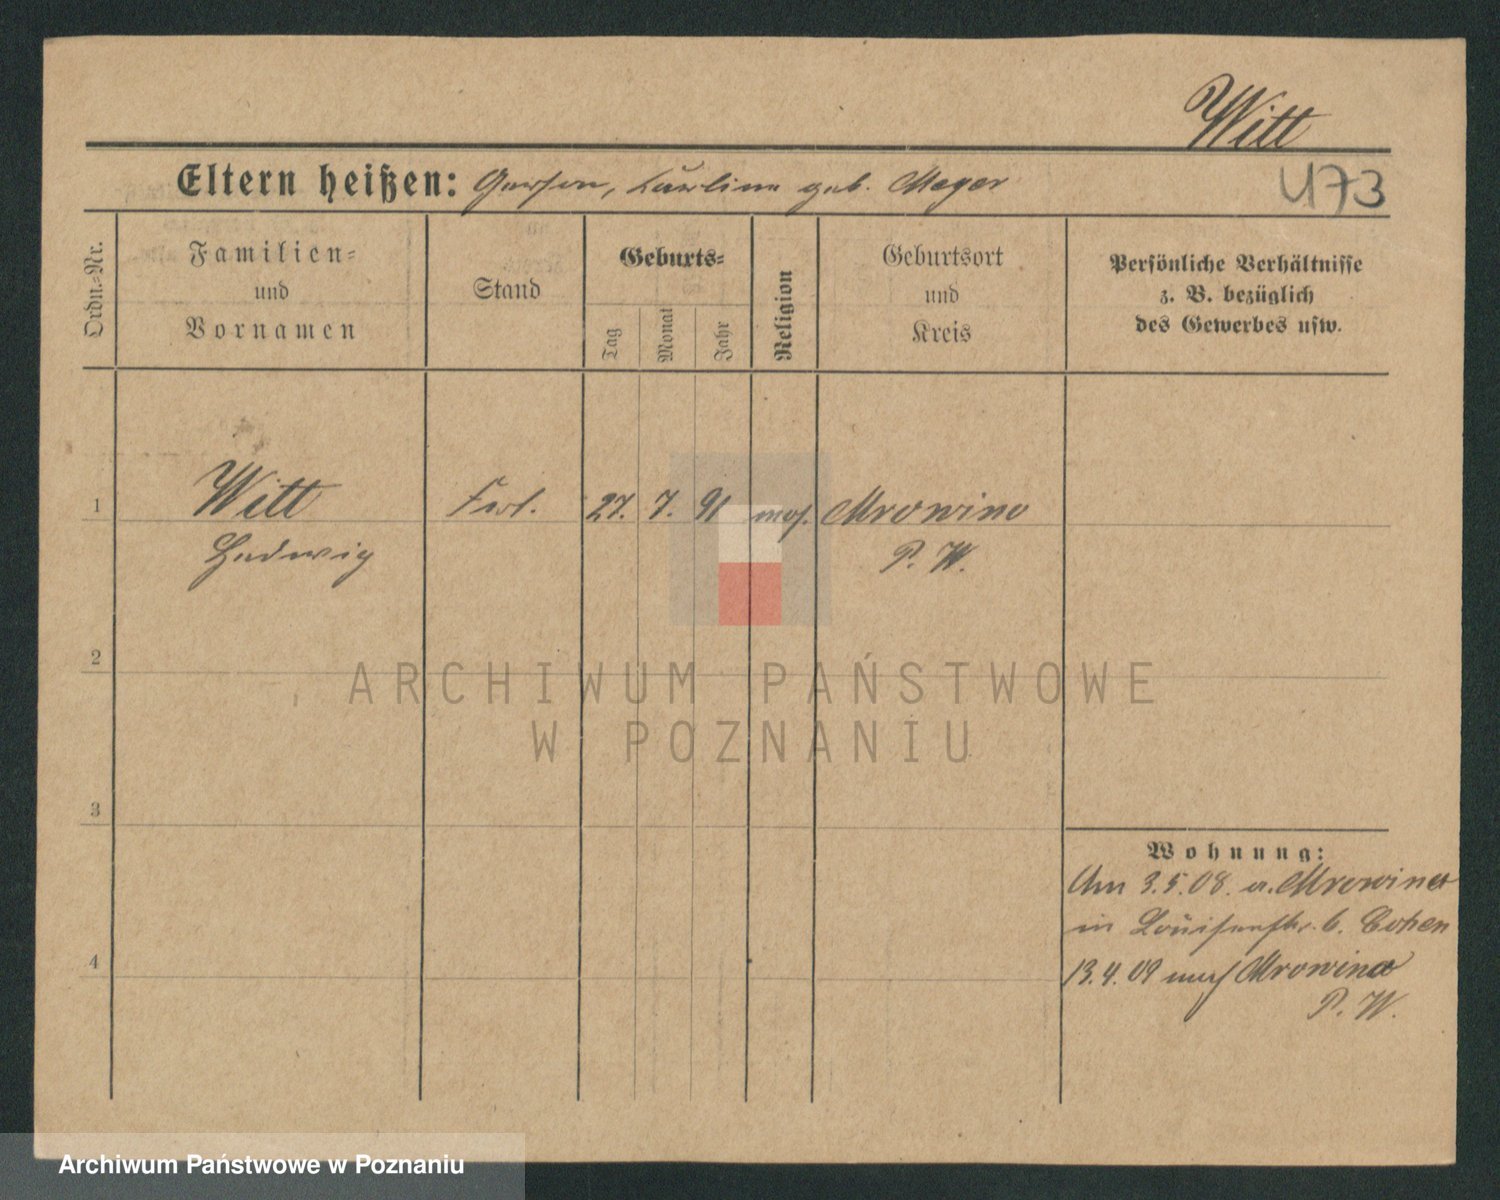 Witt
Eltern heißen: Gerson, Pauline geb. Meyer
473
Ordn.-Nr.
Familien-
und
Vornamen
Stand
Geburts-
Tag
Monat
Jahr
Religion
Geburtsort
und
Kreis
Persönliche Verhältnisse
z. B. bezüglich
des Gewerbes usw.
1 Witt 27. 7. 91 mos. Mrowino
Hedwig P. W.
2
ARCHIWUM PAŃSTWOWE
W POZNANIU
3
Wohnung:
Am 3.5.08. a. Mrowino
in Louisenstr. 6. Cohen
4
13.4.09 nach Mrowino
P. W.
Archiwum Państwowe w Poznaniu